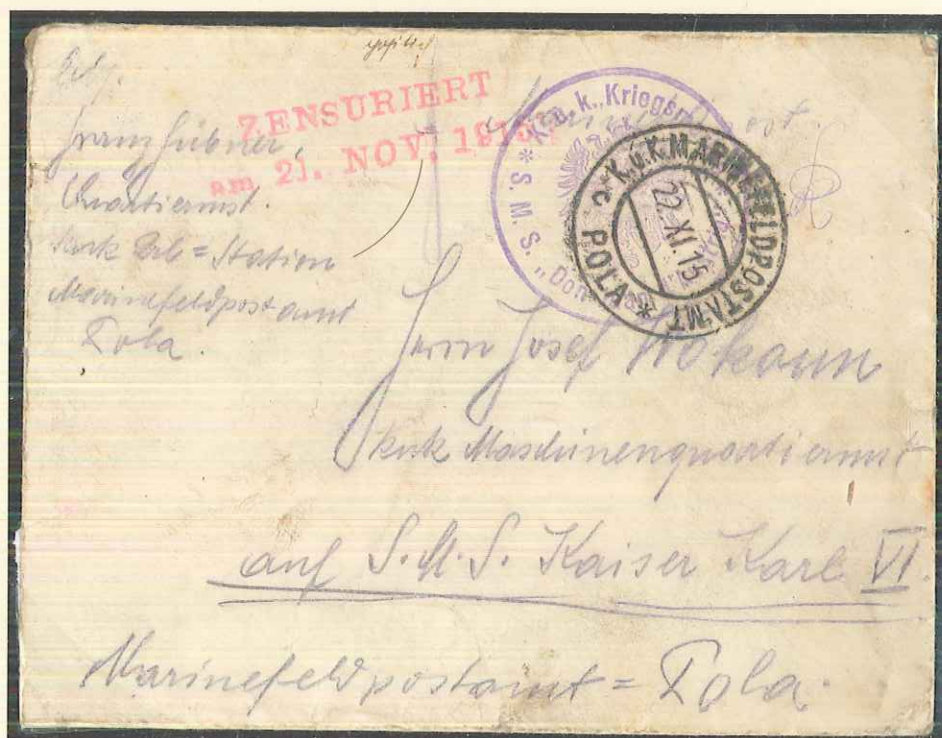 Franz Hübner,
Quartiermst.
kuk = Station
Marinefeldpostamt
Pola.
ZENSURIERT
am 21. NOV. 1915
* K. u. k. Kriegsm
* S. M. S. „Don
K.u.K. MARINEFELDPOSTAMT
* POLA c
22.XI.15
Herrn Josef Wokaun
kuk Maschinenquartiermst
auf S.M.S. Kaiser Karl VI.
Marinefeldpostamt = Pola.